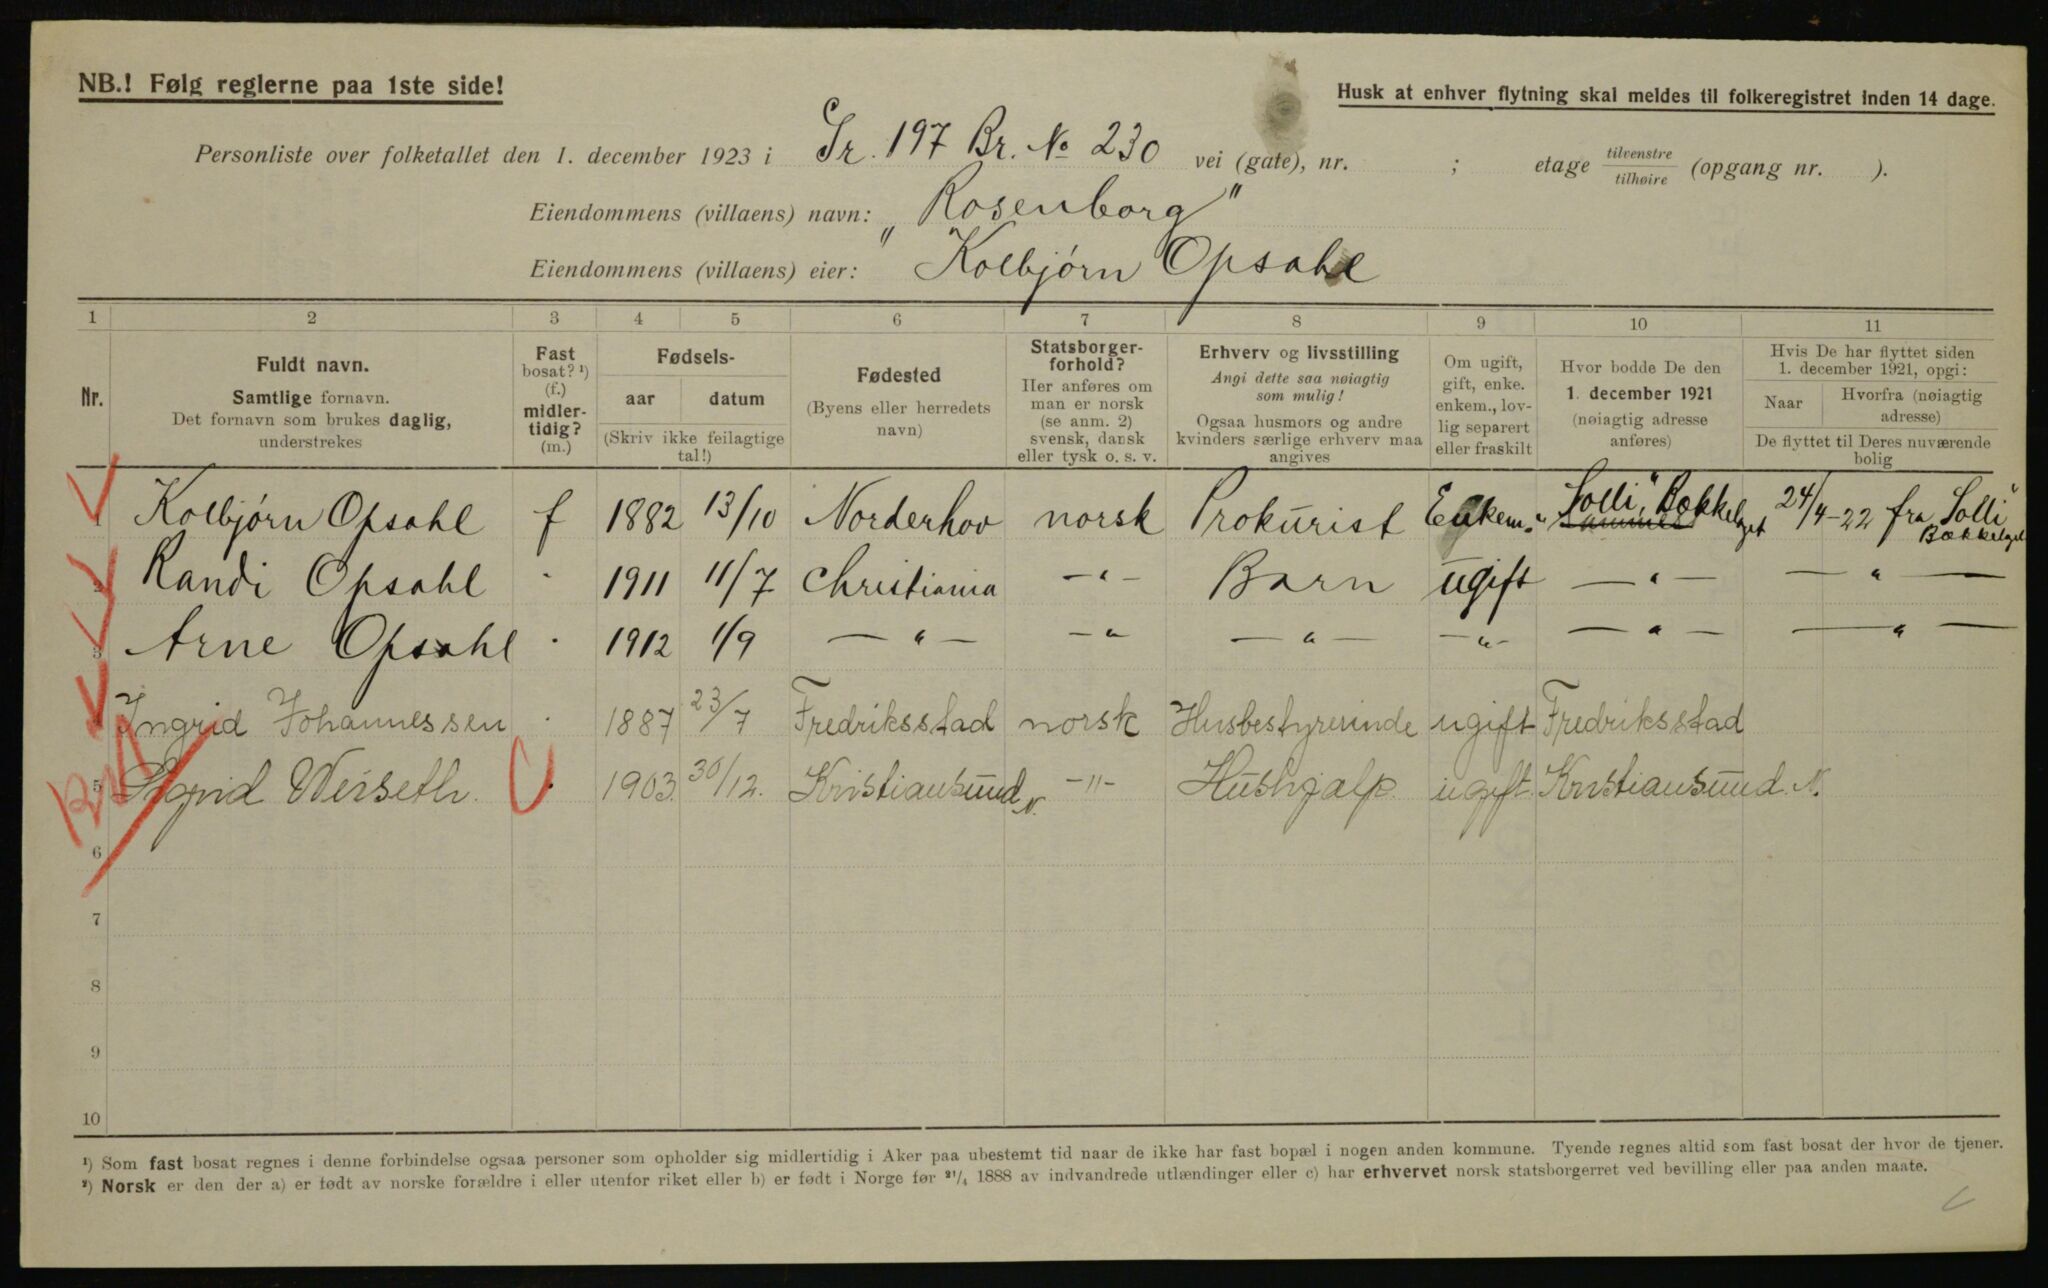 NB.! Følg reglerne paa 1ste side!
Husk at enhver flytning skal meldes til folkeregistret inden 14 dage.
Personliste over folketallet den 1. december 1923 i Gr. 197 Br. No 230 vei (gate), nr. ; etage tilvenstre/tilhøire (opgang nr. ).
Eiendommens (villaens) navn: „Rosenborg"
Eiendommens (villaens) eier: Kolbjørn Opsahl
1 2 3 4 5 6 7 8 9 10 11
Nr.
Fuldt navn.
Samtlige fornavn.
Det fornavn som brukes daglig,
understrekes
Fast
bosat? ¹)
(f.)
midler-
tidig?
(m.)
Fødsels-
aar datum
(Skriv ikke feilagtige
tal!)
Fødested
(Byens eller herredets
navn)
Statsborger-
forhold?
Her anføres om
man er norsk
(se anm. 2)
svensk, dansk
eller tysk o. s. v.
Erhverv og livsstilling
Angi dette saa nøiagtig
som mulig!
Ogsaa husmors og andre
kvinders særlige erhverv maa
angives
Om ugift,
gift, enke.
enkem., lov-
lig separert
eller fraskilt
Hvor bodde De den
1. december 1921
(nøiagtig adresse
anføres)
Hvis De har flyttet siden
1. december 1921, opgi:
Naar Hvorfra (nøiagtig
adresse)
De flyttet til Deres nuværende
bolig
1 Kolbjørn Opsahl f 1882 13/10 Norderhov norsk Prokurist Enkem. „Solli" Bækkelaget 24/4-22 fra „Solli" Bækkelaget
2 Randi Opsahl 1911 11/7 Christiania —„— Barn ugift —„— —„—
3 Arne Opsahl 1912 1/9 —„— —„— —„— —„— —„— —„—
4 Ingrid Johannessen 1887 23/7 Fredriksstad norsk Husbestyrerinde ugift Fredriksstad
5 Sigrid Weiseth. 1903. 30/12. Kristiansund N. —"— Hushjælp. ugift. Kristiansund. N.
6
7
8
9
10
¹) Som fast bosat regnes i denne forbindelse ogsaa personer som opholder sig midlertidig i Aker paa ubestemt tid naar de ikke har fast bopæl i nogen anden kommune. Tyende regnes altid som fast bosat der hvor de tjener.
²) Norsk er den der a) er født av norske forældre i eller utenfor riket eller b) er født i Norge før ²¹/₄ 1888 av indvandrede utlændinger eller c) har erhvervet norsk statsborgerret ved bevilling eller paa anden maate.